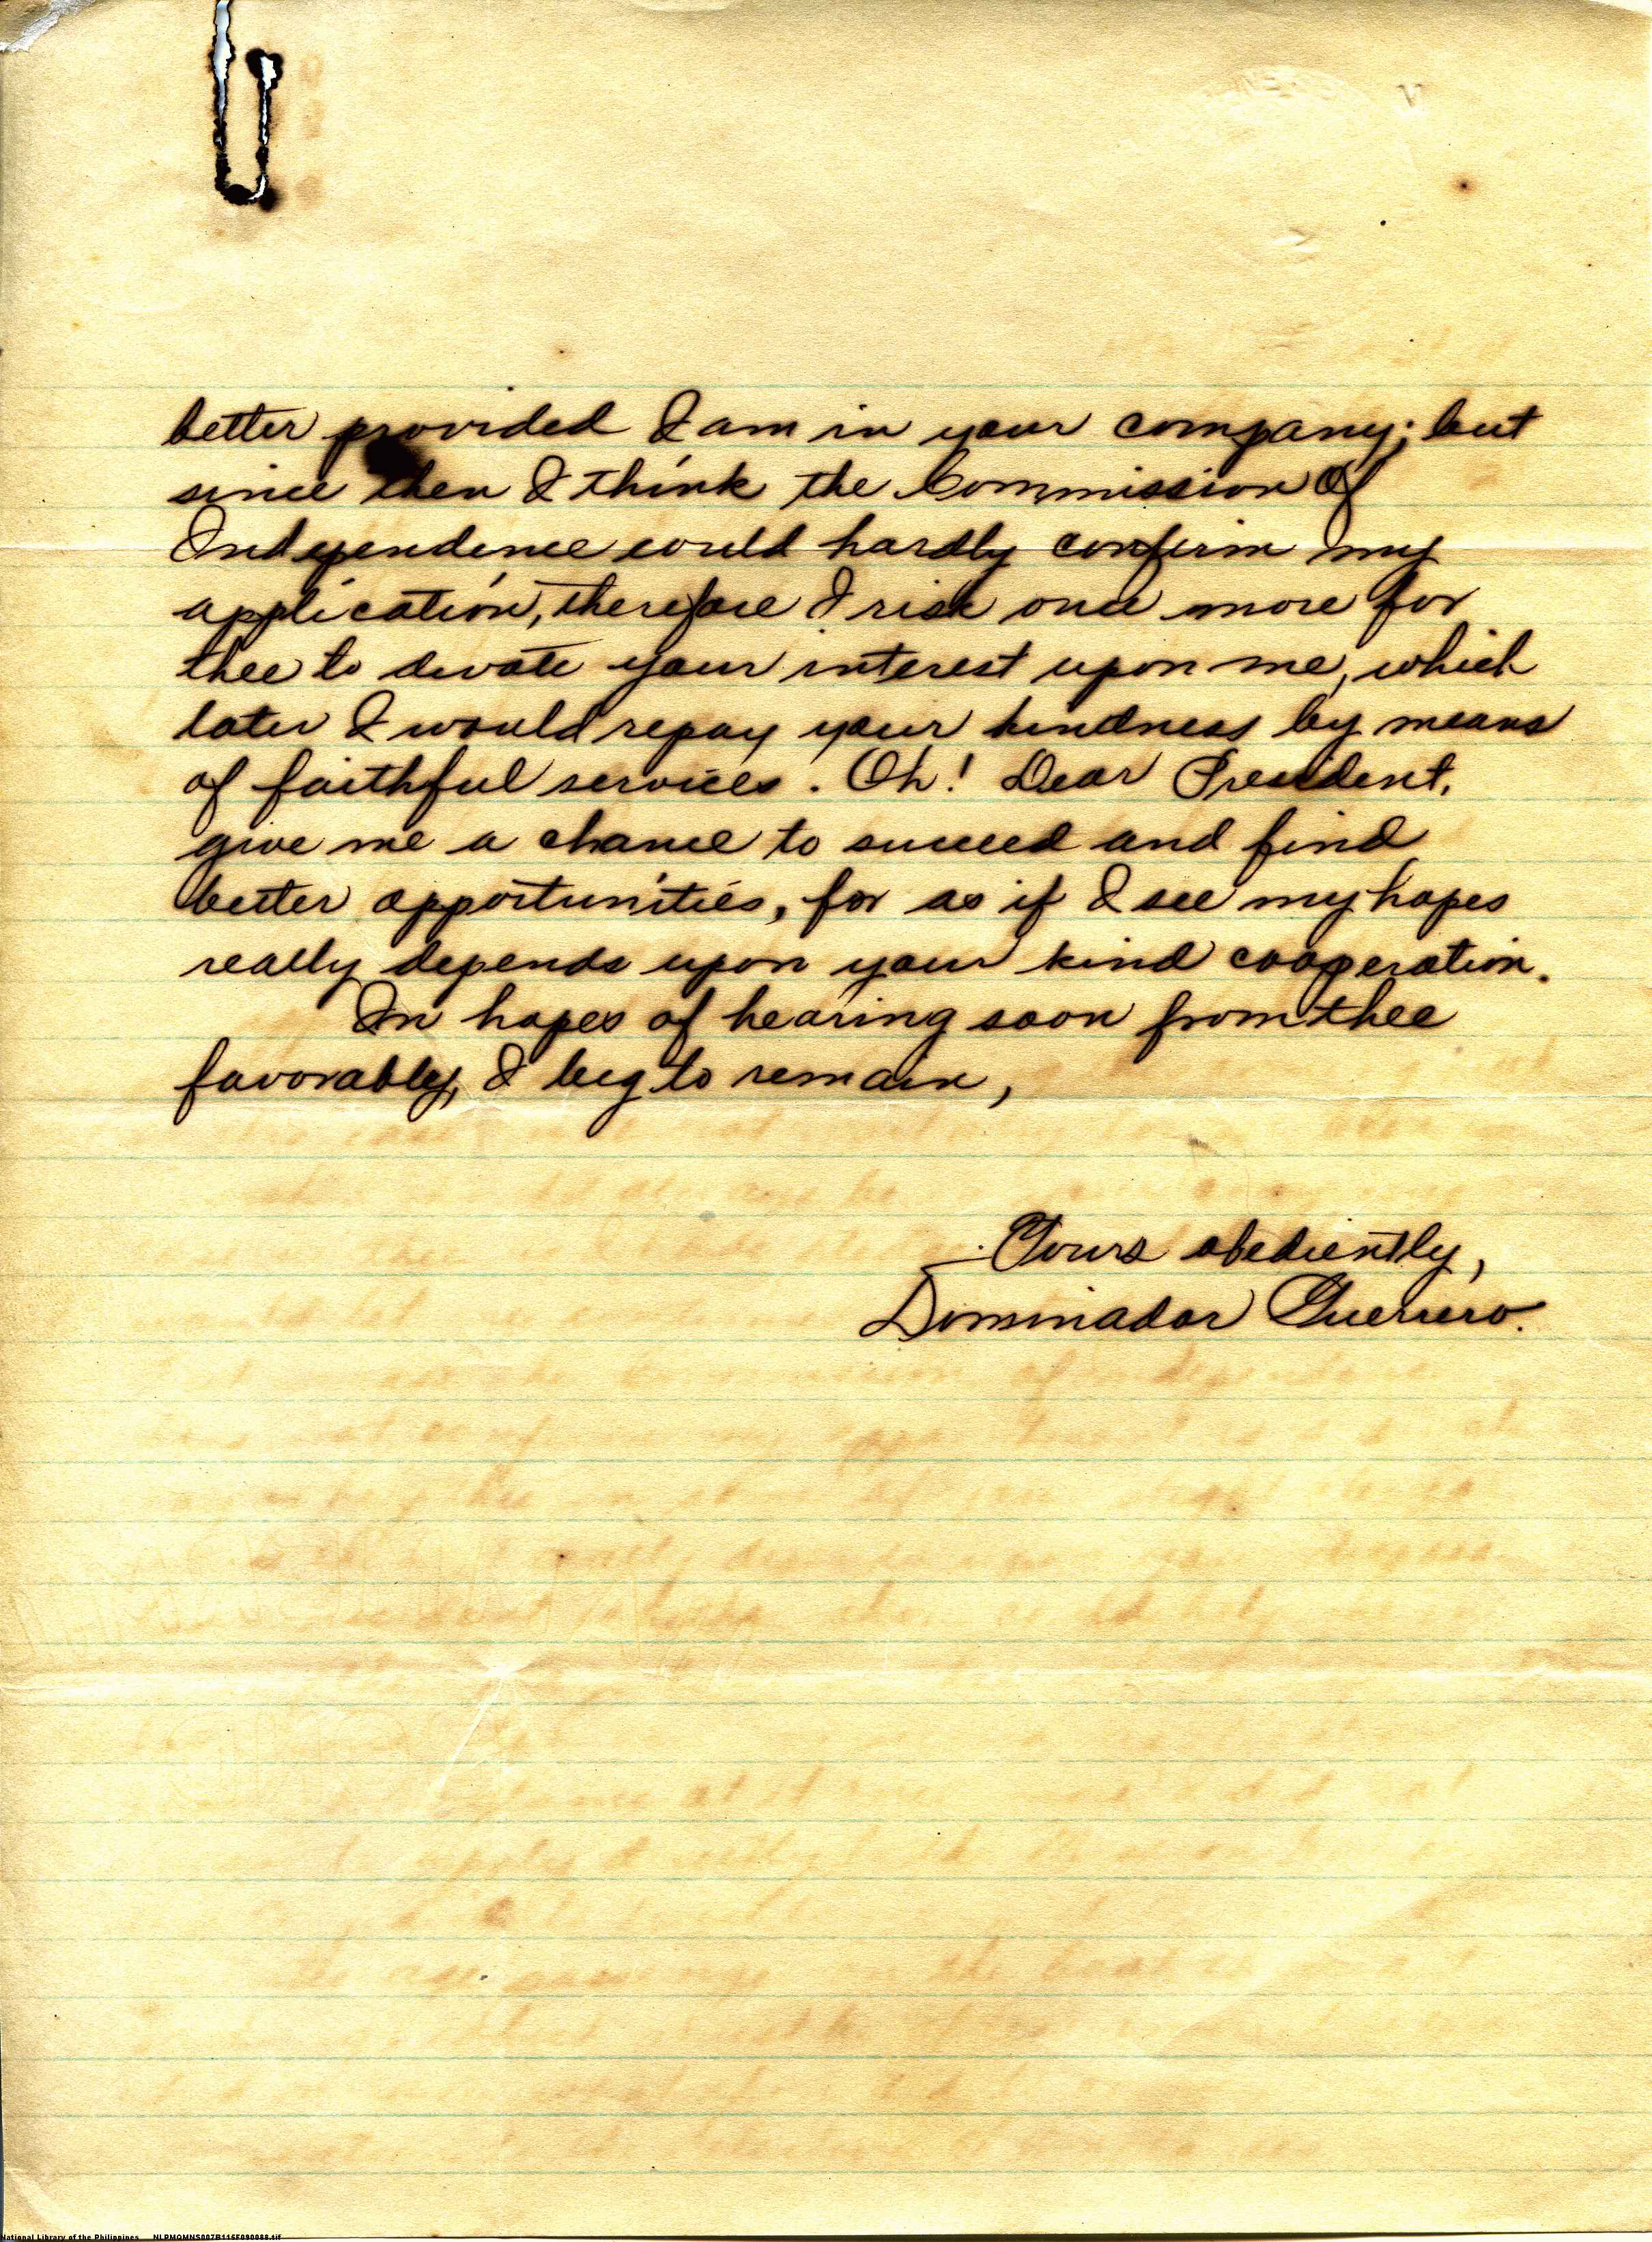 better provided I am in your company; but
since then I think the Commission of
Independence could hardly confirm my
application, therefore I risk once more for
thee to devote your interest upon me, which
later I would repay your kindness by means
of faithful services. Oh! Dear President,
give me a chance to succeed and find
better opportunities, for as if I see my hopes
really depends upon your kind cooperation.
In hopes of hearing soon from thee
favorably, I beg to remain,
Yours obediently,
Dominador Guerrero.
National Library of the Philippines NLPMQMNS007B115F090088.tif